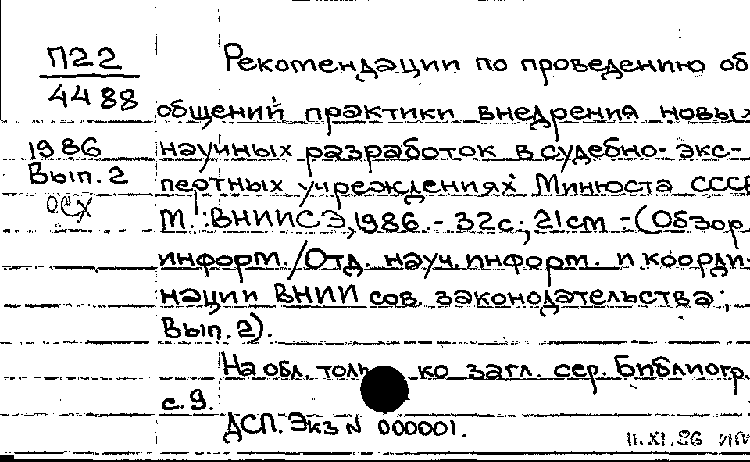 П22
4488
1986
Вып. 2
ОСХ
Рекомендации по проведению об
общений практики внедрения новых
научных разработок в судебно-экс-
пертных учреждениях Минюста СССР
М.: ВНИИСЭ, 1986. - 32с.; 21см - (Обзор.
информ./Отд. науч. информ. и коорди-
нации ВНИИ сов. законодательства;
Вып. 2).
На обл. только загл. сер. Библиогр.
с. 9.
ДСП. Экз N 000001.
11.XI.86